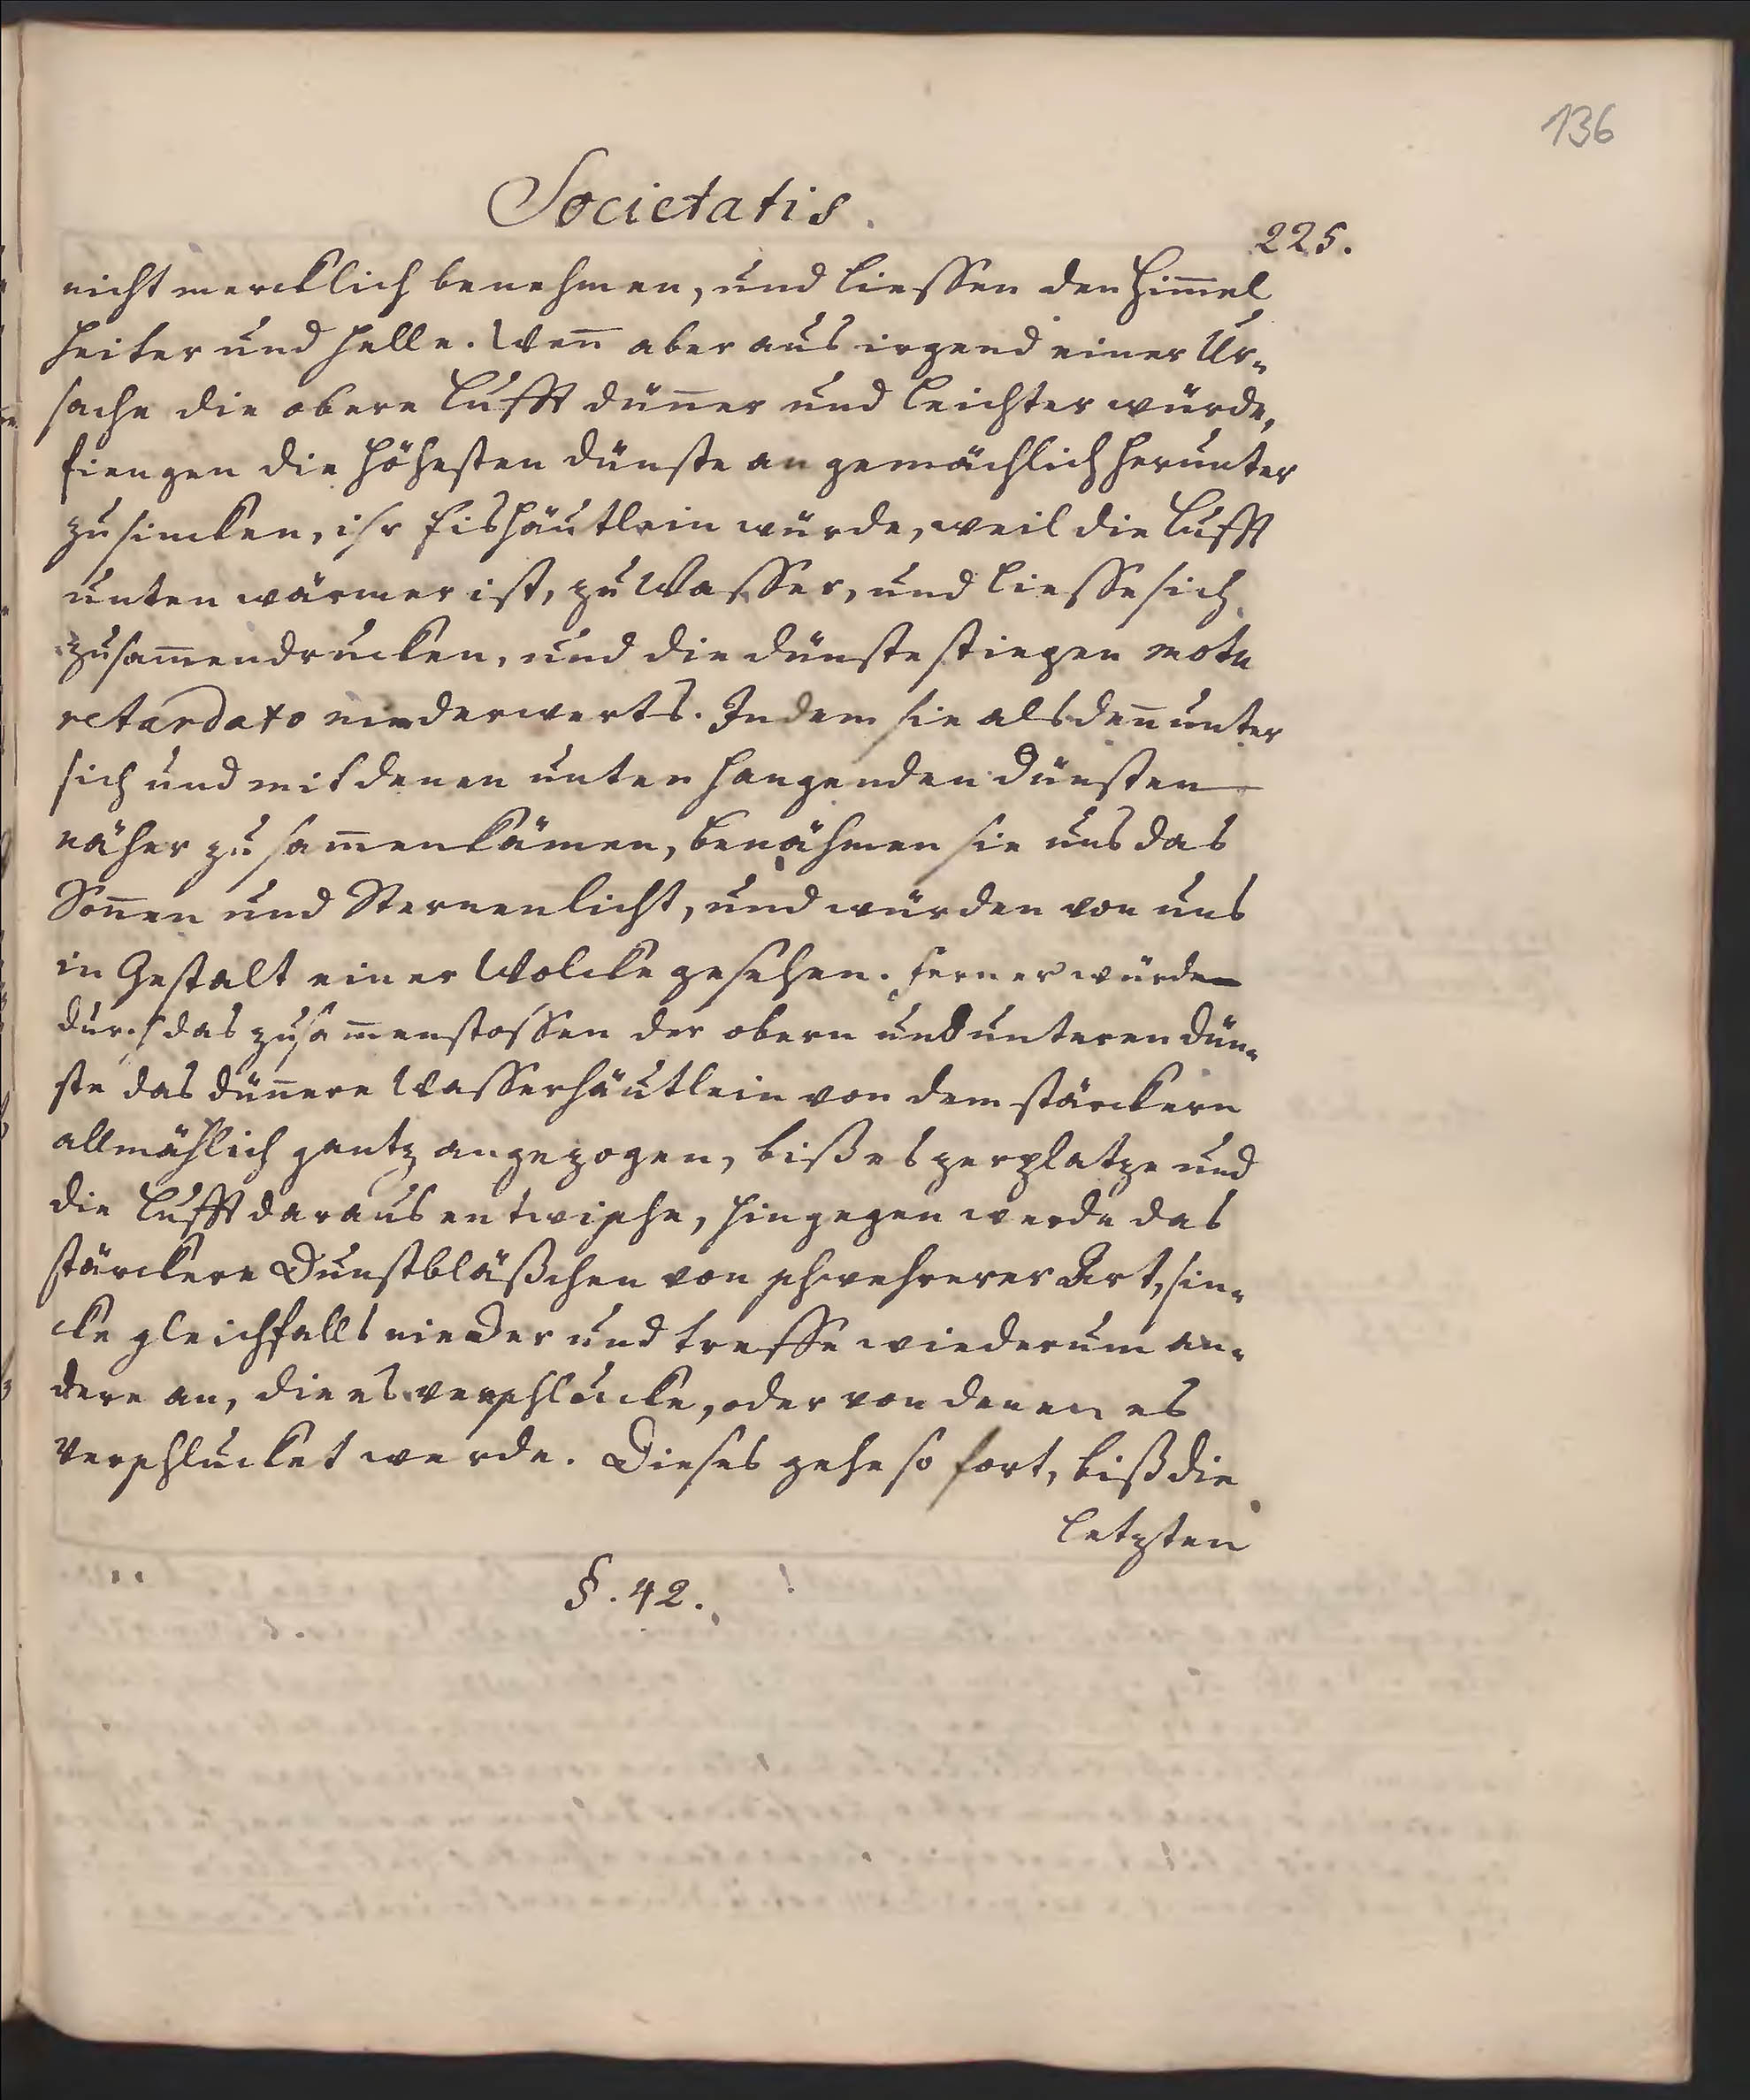 136
Societatis.
225.
nicht mercklich benehmen, und liessen den Him̄el
heiter und helle. Wen̄ aber aus irgend einer Ur-
sache die obere Lufft dün̄er und leichter würde,
fiengen die höhesten Dünste an gemächlich herunter
zu sincken, ihr Eishäutlein würde, weil die Lufft
unten wärmer ist, zu Wasser, und liesse sich
zusam̄endrucken, und die Dünste stiegen motu
retardato niederwerts. Indem sie alsden̄ unter
sich und mit denen unten hangenden Dünsten
näher zusam̄enkämen, benähmen sie uns das
Son̄en und Sternenlicht, und würden von uns
in Gestalt einer Wolcke gesehen. Ferner würde
durch das zusam̄enstossen der obern und unteren Dün-
ste das dün̄ere Wasserhäutlein von dem stärckern
allmählich gantz angezogen, biß es zerplatze und
die Lufft daraus entwische, hingegen werde das
stärckere Dunstbläßchen von schwehrerer Art, sin-
cke gleichfalls nieder und treffe wiederum an-
dere an, die es verschlucke, oder von denen es
verschlucket werde. Dieses gehe so fort, biß die
letzten
§. 42.